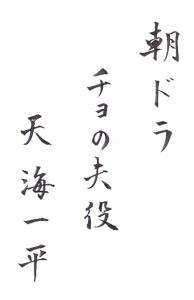 朝ドラ
チョの夫役
天海一平